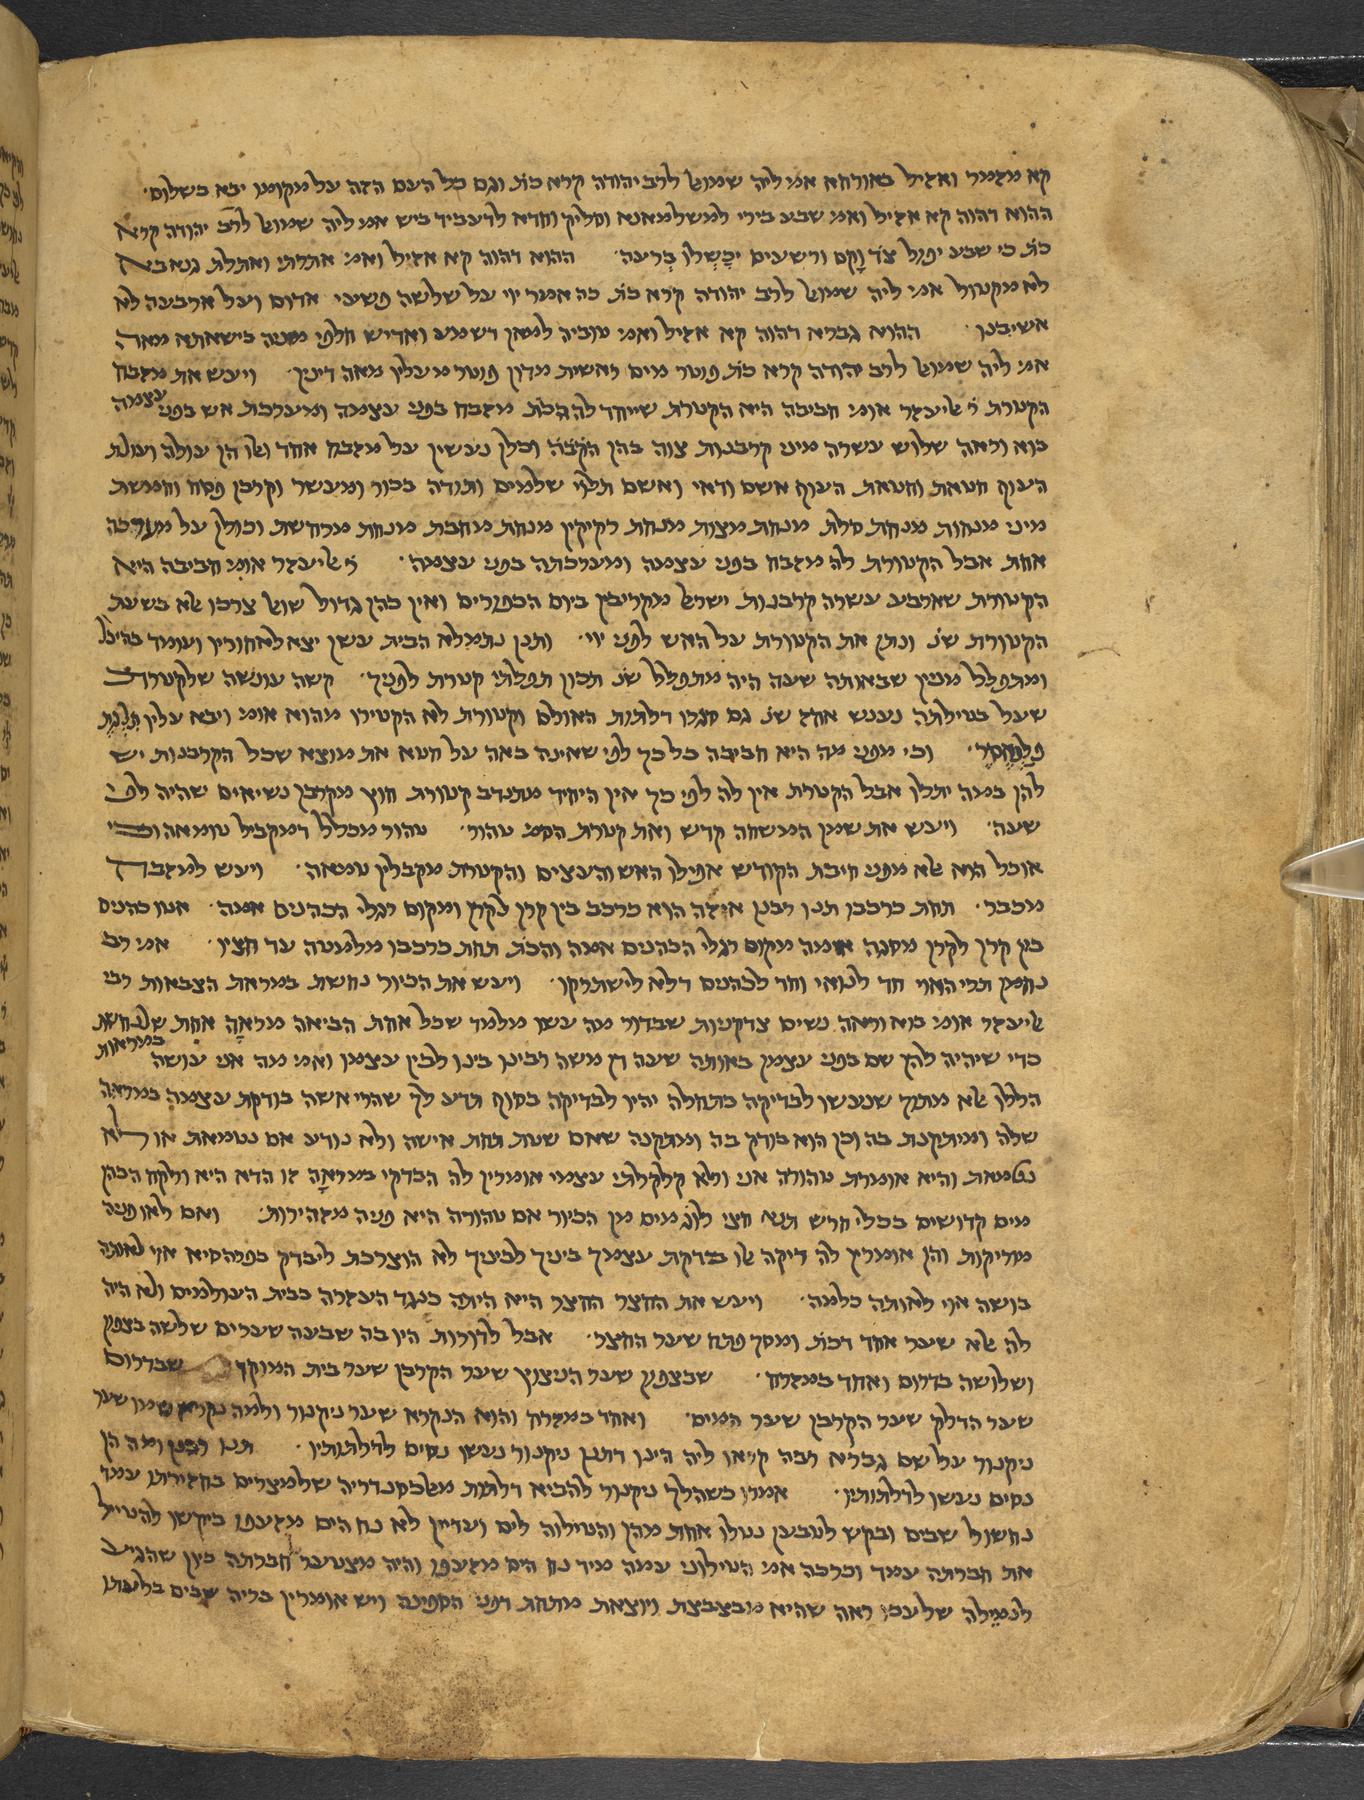 קא מזמר ואזיל באורחא אמ׳ ליה שמואל לרב יהודה קרא כת׳ וגם כל העם הזה על מקומו יבא בשלום׳
ההוא דהוה קא אזיל ואמ׳ שבע בירי למשלמאנא וסליק וחדא לדעביד ביש אמ׳ ליה שמואל לרב יהודה קרא
כת׳ כי שבע יפול צדיק וָקָם ורשעים יִכָּשְלוּ בְרעה׳ ההוא דהוה קא אזיל ואמ׳ אתלתי ואתלת גנאבא
לא מקטול אמ׳ ליה שמואל לרב יהודה קרא כת׳ כה אמר יוי על שלשה פשעי אדום ועל ארבעה לא
אשיבנו׳ ההוא גברא דהוה קא אזיל ואמ׳ טוביה למאן דשמע ואדיש חלפי מיניה בישאתא מאה
אמ׳ ליה שמואל לרב יהודה קרא כת׳ פוטר מים ראשית מדון פוטר מעליו מאה דינין׳ ויעש את מזבח
הקטרת ר׳ אליעזר אומ׳ חביבה היא הקטרת שייחד לה הכת׳ מזבח בפני עצמה ומערכת אש בפני עצמה
בוא וראה שלוש עשרה מיני קרבנות צוה בהן הקב״ה וכלן נעשין על מזבח אחד ואלו הן עולה ועולת
העוף חטאת וחטאת העוף אשם ודאי ואשם תלוי שלמים ותודה בכור ומעשר וקרבן פסח וחמשת
מיני מנחות מנחת סלת מנחת מצות מנחת רקיקין מנחת מחבת מנחת מרחשת וכולן על מערכה
אחת אבל הקטורת לה מזבח בפני עצמה ומערכתה בפני עצמה׳ ר׳ אליעזר אומ׳ חביבה היא
הקטורת שארבע עשרה קרבנות ישראל מקריבין ביום הכפורים ואין כהן גדול שואל צרכו אלא בשעת
הקטורת שנ׳ ונתן את הקטורת על האש לפני יוי׳ ותנן נתמלא הבית עשן יצא לאחוריו ועומד בהיכל
ומתפלל מנין שבאותה שעה היה מתפלל שנ׳ תכון תפלתי קטרת לפניך׳ קשה עונשה שלקטורת
שעל בטילתה נענש אחז שנ׳ גם סגרו דלתות האולם וקטורת לא הקטירו מהוא אומ׳ ויבא עליו תִלְגַת
פִלְנְאֶסֶר׳ וכי מפני מה היא חביבה כל כך לפי שאינה באה על חטא את מוצא שכל הקרבנות יש
להן במה יתלו אבל הקטרת אין לה לפי כך אין היחיד מתנדב קטורת חוץ מקרבן נשיאים שהיה לפי
שעה׳ ויעש את שמן המשחה קדש ואת קטרת הסמ׳ טהור׳ טהור מכלל דמקביל טומאה וכי
אוכל הוא אלא מפני חיבת הקודש אפילו האש והעצים והקטרת מקבלין טומאה׳ ויעש למזבח
מכבר׳ תחת כרכבו תנו רבנן איזה הוא כרכב בין קרן לקרן ומקום רגלי הכהנים אמה׳ אטו כהנים
בין קרן לקרן מסגה אומה מקום רגלי הכהנים אמה והכת׳ תחת כרכבו מלמטה עד חציו׳ אמ׳ רב
נחמן תרי האוי חד לנואי וחד לכהנים דלא לישתרקו׳ ויעש את הכיור נחשת במראת הצבאות רבי
אליעזר אומ׳ בוא וראה נשים צדקניות שבדור מה עשו מלמד שכל אחת הביאה מראָה אחת שלנחשת
כדי שיהיה להן שם בפני עצמן באותה שעה דן משה רבינו בינו לבין עצמו ואמ׳ מה אני עושה במראות
הללו אלא מתוך שנעשו לבדיקה בתחלה יהיו לבדיקה בסוף תדע לך שהרי אשה בודקת עצמה במראה
שלה ומיתקנת בה וכן הוא בודק בה ומתקנה שאם שטת תחת אישה ולא נודע אם נטמאת או לא
נטמאת והיא אומרת טהורה אני ולא קלקלתי עצמי אומרין לה הבדקי במראָה זו הדא היא ולקח הכהן
מים קדושים בכלי חרש תנא חצי לוג מים מן הכיור אם טהורה היא פניה מזהירות׳ ואם לאו פניה
מוריקות והן אומרין לה דיקה אלו בדקת עצמך ביניך לביניך לא הוצרכת ליבדק בפרהסיא אוי לאותה
בושה אוי לאותה כלמה׳ ויעש את החצר החצר היא היתה כנגד העזרה בבית העולמים ולא היה
לה אלא שער אחד דכת׳ ומסך פתח שער החצר׳ אבל לדורות היו בה שבעה שערים שלשה בצפון
ושלושה בדרום ואחד במזרח׳ שבצפון שער הניצוץ שער הקרבן שער בית המוקד שבדרום
שער הדלק שער הקרבן שער המים׳ ואחד במזרח והוא הנקרא שער ניקנור ולמה נקרא שמו שער
ניקנור על שם גברא רבה קראו ליה היינו דתנן ניקנור נעשו נסים לדלתותיו׳ תנו רבנן ומה הן
נסים נעשו לדלתותיו׳ אמרו כשהלך ניקנור להביא דלתות מאלכסנדריה שלמצרים בחזירתו עמד
נחשול שבים ובקש לטבען נטלו אחת מהן והטילוה לים ועדיין לא נח הים מזעפו ביקשו להטיל
את חברתה עמד וכרכה אמ׳ הטילוני עמה מיד נח הים מזעפו והיה מצטער חברתה כיון שהגיע
לנמילה שלעכו ראה שהיא מבצבצת ויוצאת מתחת דפני הספינה ויש אומרין בריה שבים בלעתו